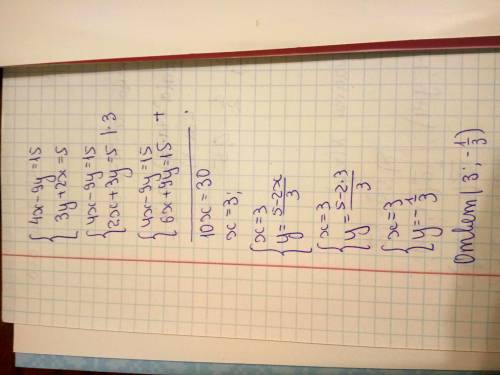 { 4x - 9y = 15
3y + 2x = 5
{ 4x - 9y = 15
2x + 3y = 5 | · 3
{ 4x - 9y = 15
6x + 9y = 15 +
10x = 30
x = 3;
{ x = 3
y = (5 - 2x)/3
{ x = 3
y = (5 - 2·3)/3
{ x = 3
y = -1/3
Ответ ( 3 ; -1/3 )